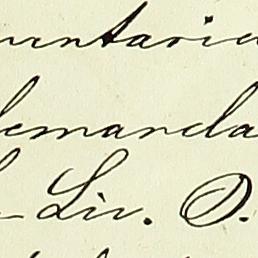 untaria
demanda
Liv. D.